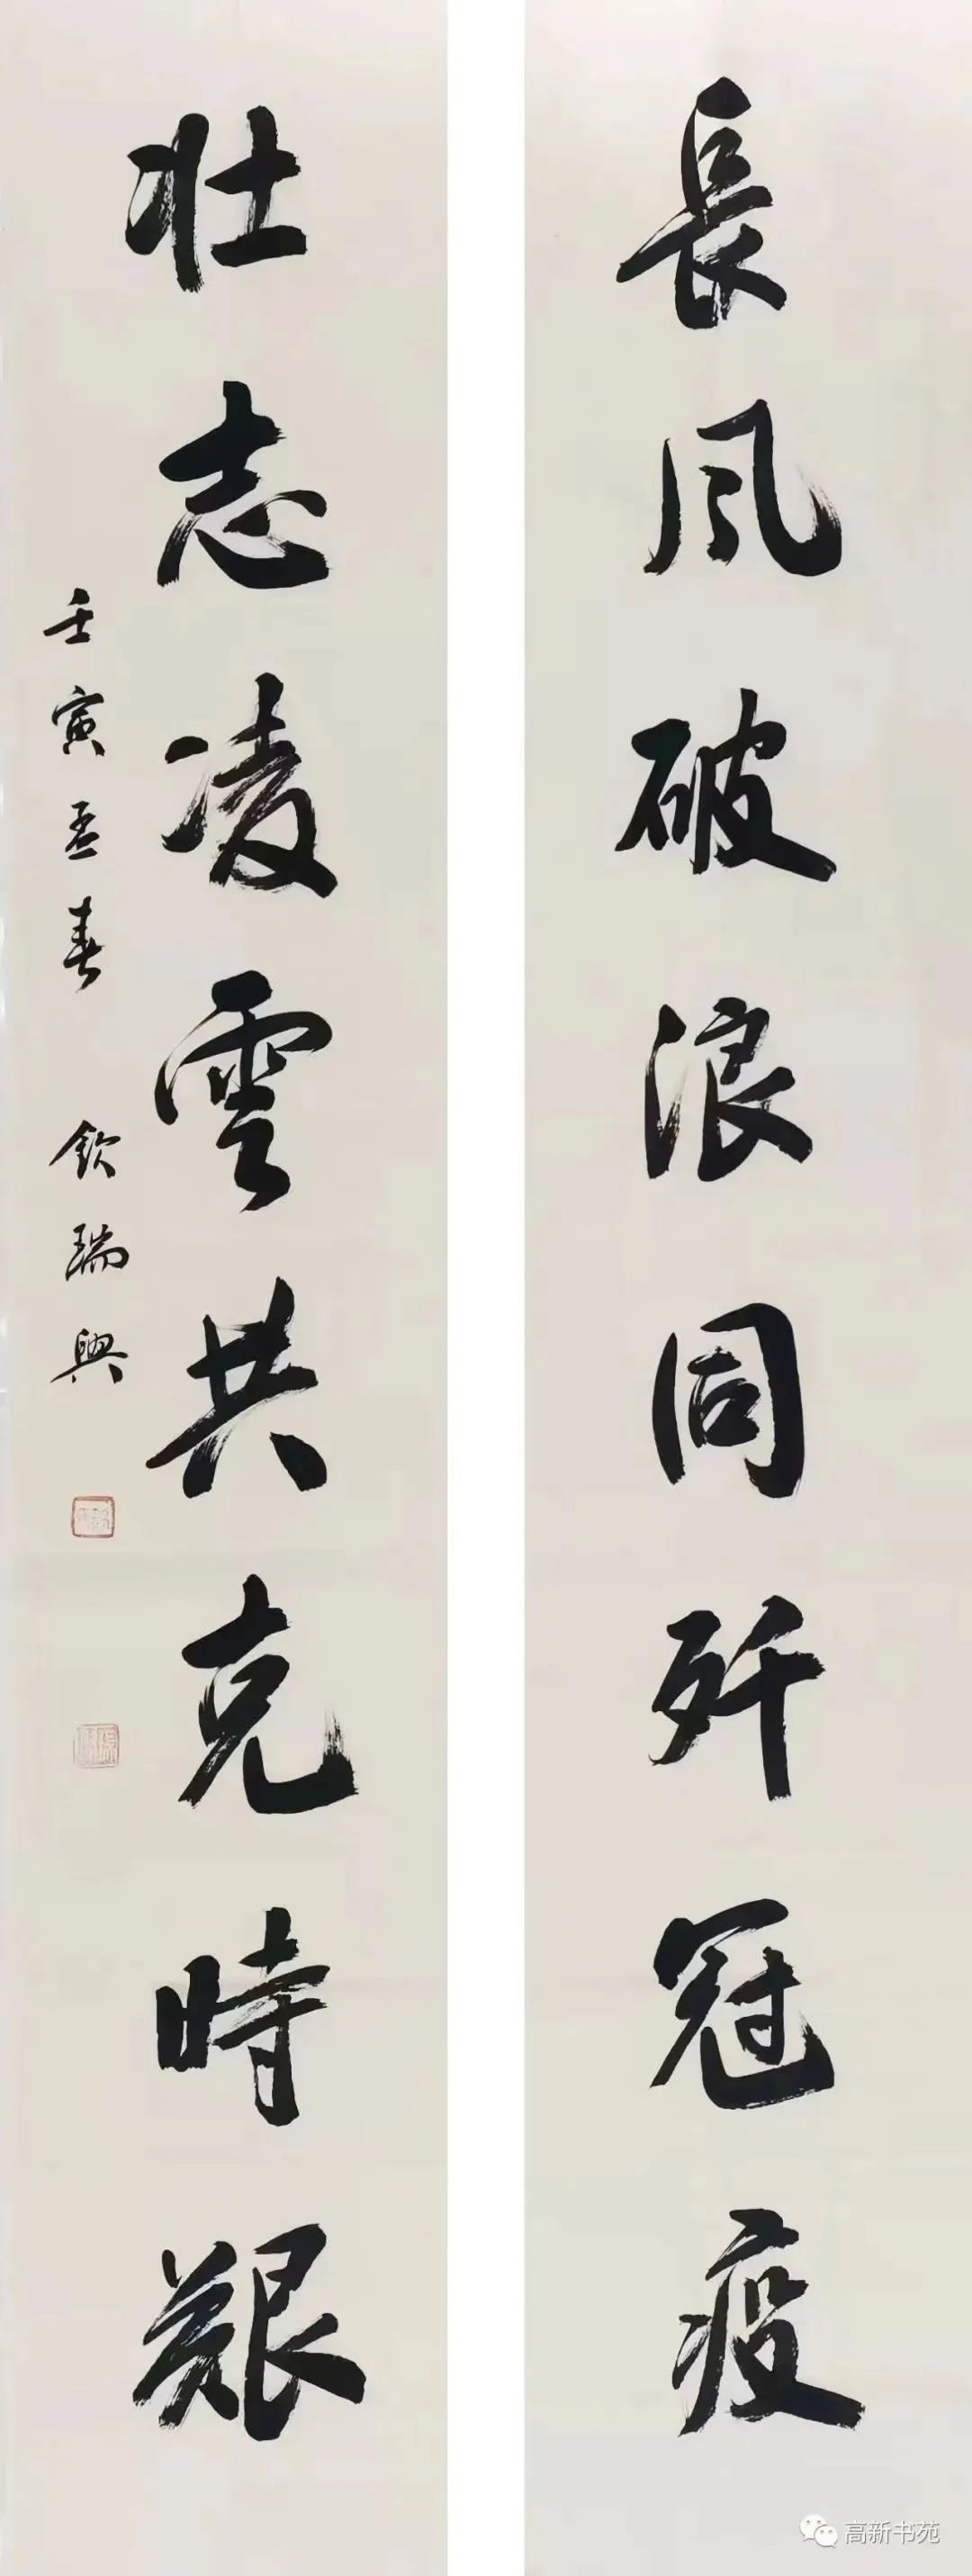 長風破浪同歼冠疫
壯志凌雲共克時艱
壬寅孟春 钦瑞興
高新书苑